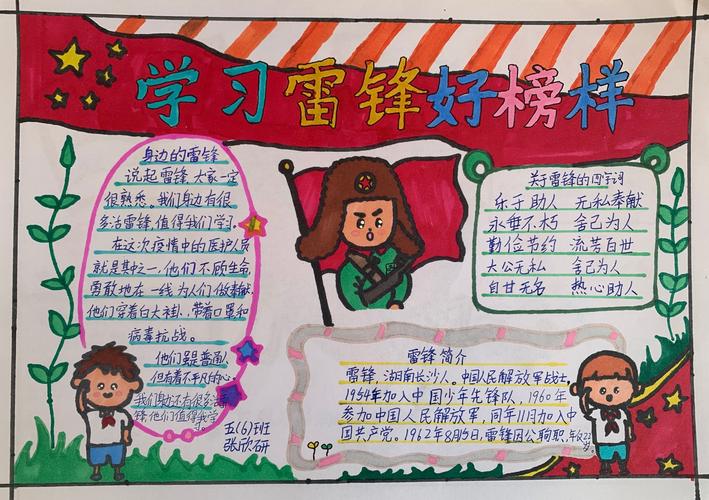 学习雷锋好榜样
身边的雷锋
说起雷锋,大家一定
很熟悉。我们身边有很
多活雷锋,值得我们学习。
在这次疫情中的医护人员
就是其中一,他们不顾生命,
勇敢地在一线为人们做奉献,
他们穿着白大褂,带着口罩和
病毒抗战。
他们虽是普通,
但有着不平凡的心。
我们身边还有很多活雷
锋,他们值得我学
五(6)班
张欣研
关于雷锋的四字词
乐于助人 无私奉献
永垂不朽 舍己为人
勤俭节约 流芳百世
大公无私 舍己为人
自甘无名 热心助人
雷锋简介
雷锋,湖南长沙人。中国人民解放军战士,
1954年加入中国少年先锋队,1960年
参加中国人民解放军,同年11月加入中
国共产党。1962年8月15日,雷锋因公殉职,年仅22
岁。